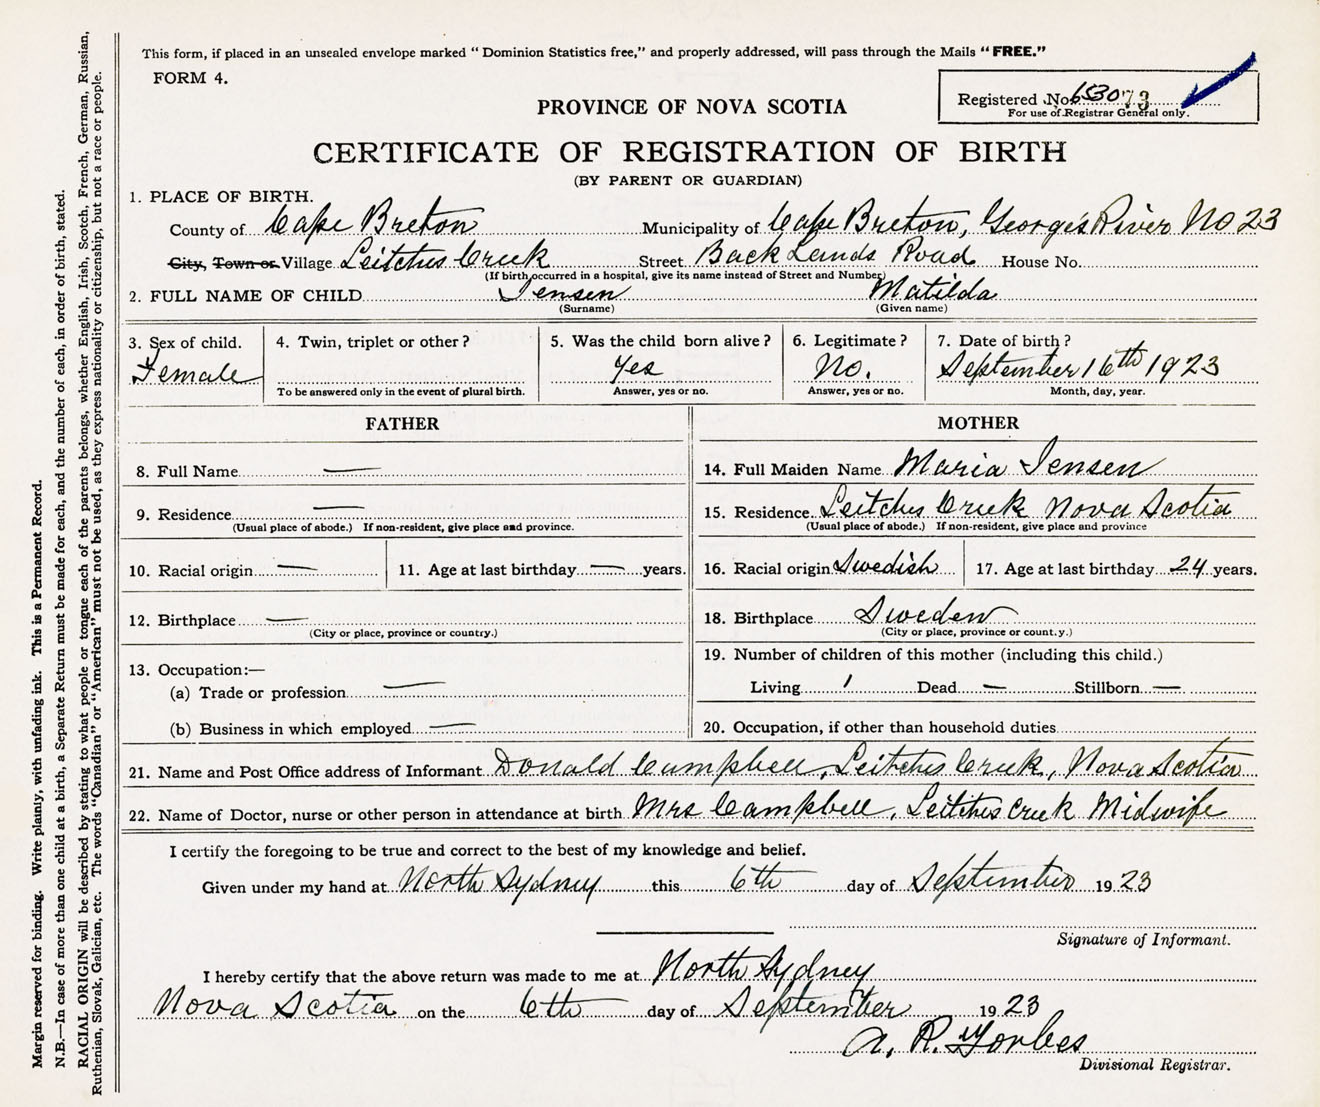 This form, if placed in an unsealed envelope marked " Dominion Statistics free," and properly addressed, will pass through the Mails "FREE."
FORM 4.
Registered No. 653073
For use of Registrar General only.
PROVINCE OF NOVA SCOTIA
CERTIFICATE OF REGISTRATION OF BIRTH
(BY PARENT OR GUARDIAN)
1. PLACE OF BIRTH.
County of Cape Breton Municipality of Cape Breton, George's River No 23
City, Town or Village Leitches Creek Street Back Lands Road House No.
(If birth occurred in a hospital, give its name instead of Street and Number)
2. FULL NAME OF CHILD Jensen Matilda
(Surname) (Given name)
3. Sex of child. 4. Twin, triplet or other? 5. Was the child born alive? 6. Legitimate? 7. Date of birth?
Female Yes No. September 16th 1923
To be answered only in the event of plural birth. Answer, yes or no. Answer, yes or no. Month, day, year.
FATHER MOTHER
8. Full Name — 14. Full Maiden Name Maria Jensen
9. Residence — 15. Residence Leitches Creek Nova Scotia
(Usual place of abode.) If non-resident, give place and province. (Usual place of abode.) If non-resident, give place and province
10. Racial origin — 11. Age at last birthday — years. 16. Racial origin Swedish 17. Age at last birthday 24 years.
12. Birthplace — 18. Birthplace Sweden
(City or place, province or country.) (City or place, province or count.y.)
13. Occupation:— 19. Number of children of this mother (including this child.)
(a) Trade or profession — Living 1 Dead — Stillborn —
(b) Business in which employed — 20. Occupation, if other than household duties
21. Name and Post Office address of Informant Donald Campbell, Leitches Creek, Nova Scotia
22. Name of Doctor, nurse or other person in attendance at birth Mrs Campbell, Leitches Creek Midwife
I certify the foregoing to be true and correct to the best of my knowledge and belief.
Given under my hand at North Sydney this 6th day of September 1923
Signature of Informant.
I hereby certify that the above return was made to me at North Sydney
Nova Scotia on the 6th day of September 1923
A. R. Forbes
Divisional Registrar.
Margin reserved for binding. Write plainly, with unfading ink. This is a Permanent Record.
N.B.—In case of more than one child at a birth, a Separate Return must be made for each, and the number of each, in order of birth, stated.
RACIAL ORIGIN will be described by stating to what people or tongue each of the parents belongs, whether English, Irish, Scotch, French, German, Russian,
Ruthenian, Slovak, Galician, etc. The words "Canadian" or "American" must not be used, as they express nationality or citizenship, but not a race or people.